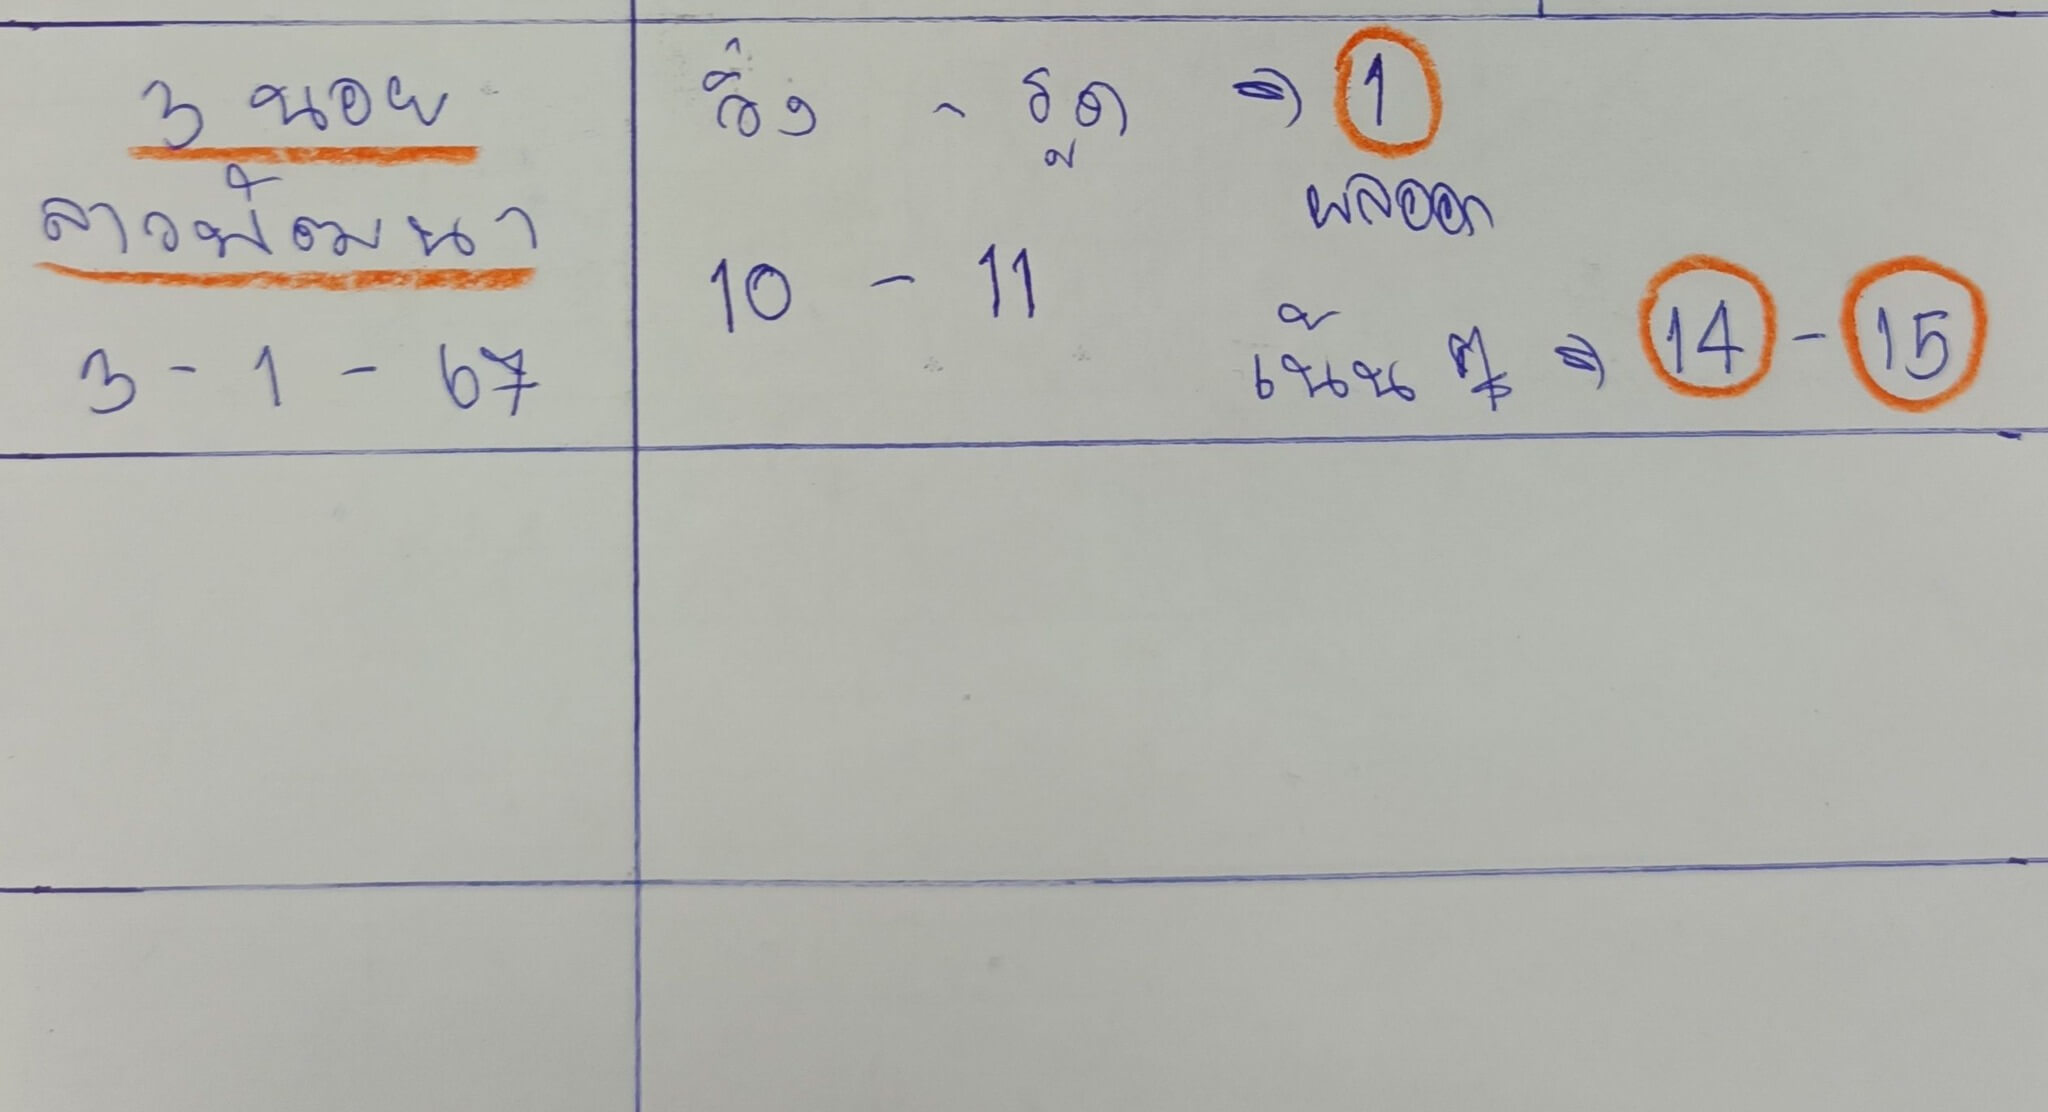 3 นอย
ลาวพัฒนา
3 - 1 - 67
วิ่ง - รูด ⇒ 1
ผลออก
10 - 11
เน้น ๆ ⇒ 14 - 15